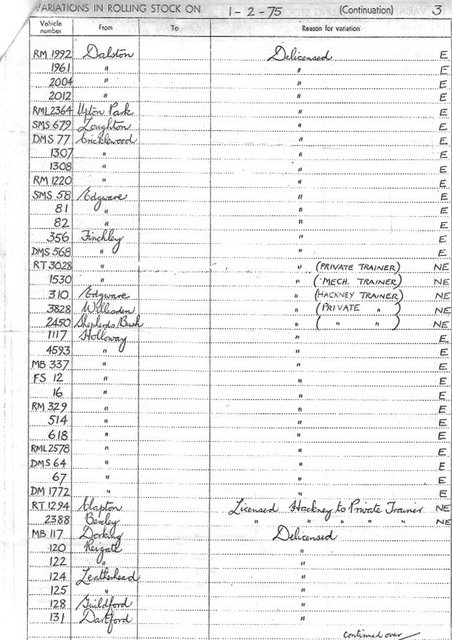 VARIATIONS IN ROLLING STOCK ON 1-2-75 (Continuation) 3
Vehicle number From To Reason for variation
RM 1992 Dalston Delicensed E
1961 " " E
2004 " " E
2012 " " E
RML 2364 Upton Park " E
SMS 679 Loughton " E
DMS 77 Cricklewood " E
1307 " " E
1308 " " E
RM 1220 " " E
SMS 58 Edgware " E
81 " " E
82 " " E
356 Finchley " E
DMS 568 " " E
RT 3028 " " (PRIVATE TRAINER) NE
1530 " " (MECH. TRAINER) NE
310 Edgware " (HACKNEY TRAINER) NE
3828 Willesden " (PRIVATE " ) NE
2450 Shepherds Bush " ( " " ) NE
1117 Holloway " E
4593 " " E
MB 337 " " E
FS 12 " " E
16 " " E
RM 329 " " E
514 " " E
618 " " E
RML 2578 " " E
DMS 64 " " E
67 " " E
DM 1772 " " E
RT 1294 Clapton Licensed Hackney to Private Trainer NE
2388 Bexley " " " " " NE
MB 117 Dorking Delicensed
120 Reigate "
122 " "
124 Leatherhead "
125 " "
128 Guildford "
131 Dartford "
continued over